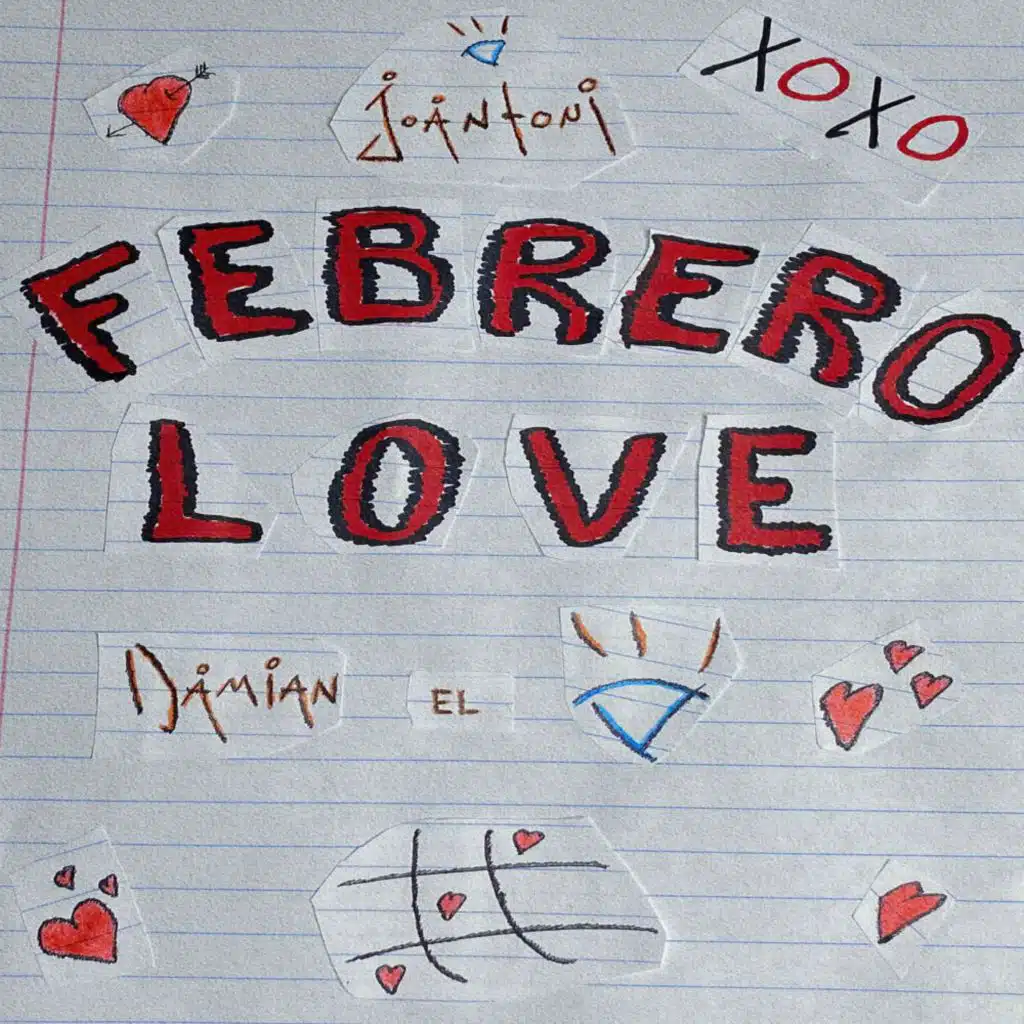 Joantoni
XOXO
FEBRERO
LOVE
DAMIAN EL